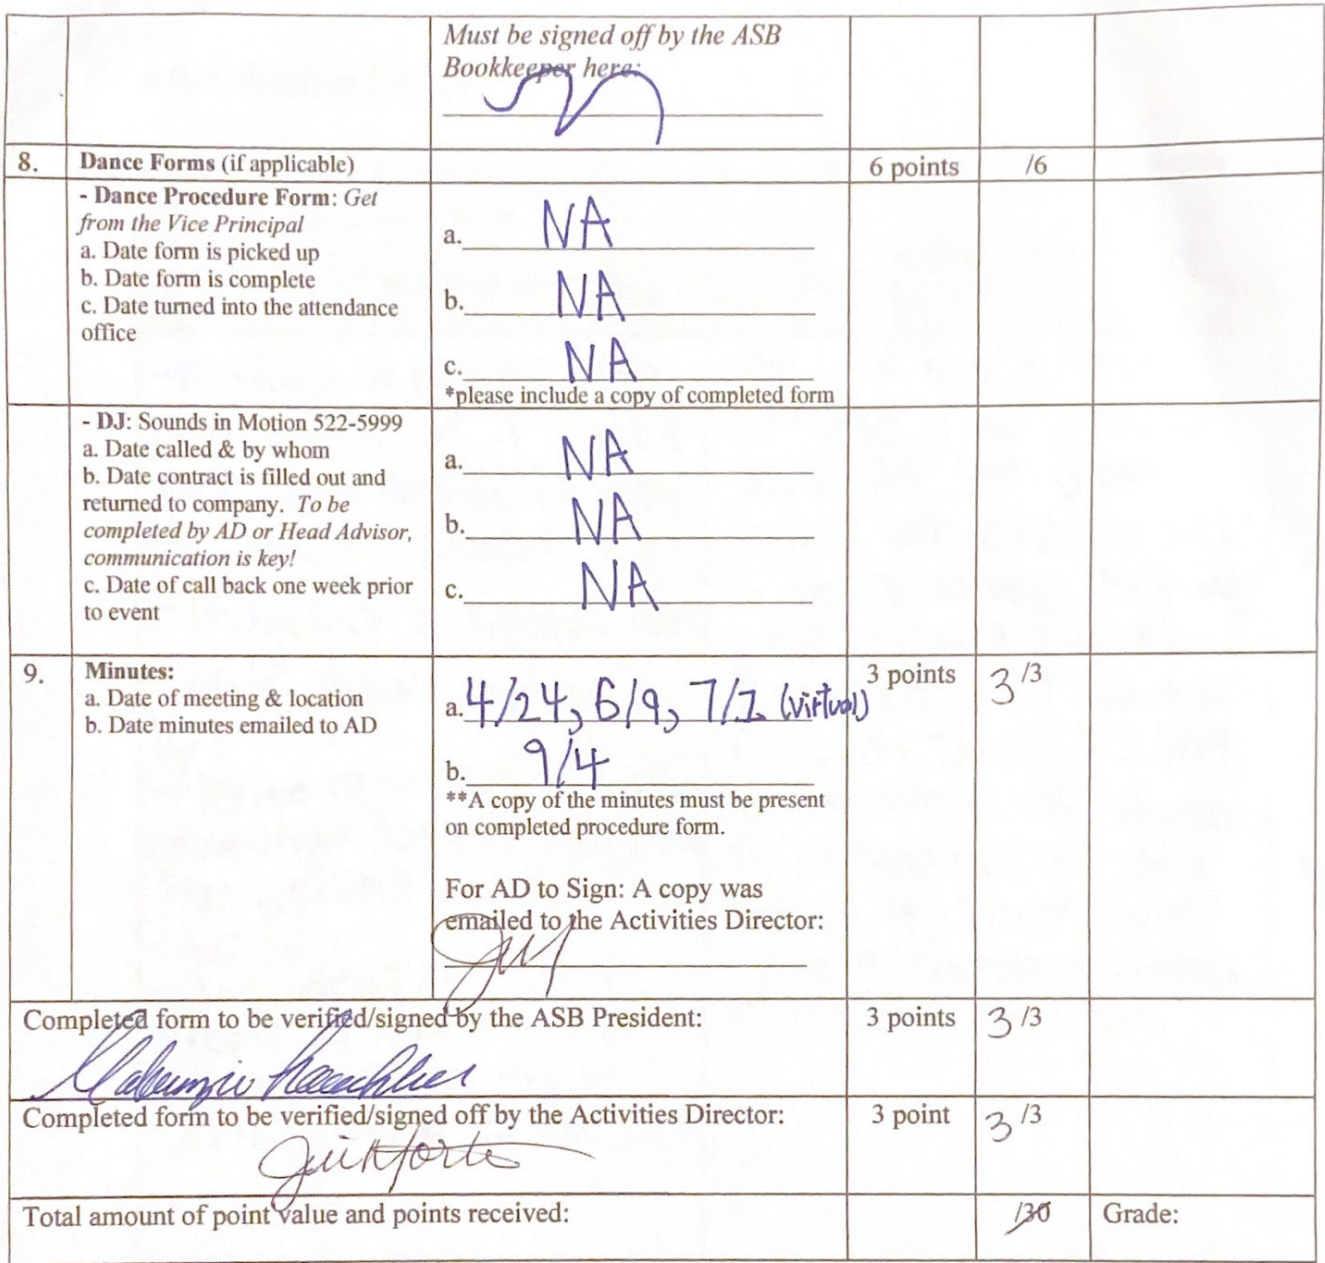 Must be signed off by the ASB
Bookkeeper here:
8. Dance Forms (if applicable) 6 points /6
- Dance Procedure Form: Get
from the Vice Principal
a. Date form is picked up
b. Date form is complete
c. Date turned into the attendance
office
a. NA
b. NA
c. NA
*please include a copy of completed form
- DJ: Sounds in Motion 522-5999
a. Date called & by whom
b. Date contract is filled out and
returned to company. To be
completed by AD or Head Advisor,
communication is key!
c. Date of call back one week prior
to event
a. NA
b. NA
c. NA
9. Minutes:
a. Date of meeting & location
b. Date minutes emailed to AD
a. 4/24, 6/9, 7/1 (virtual)
b. 9/4
**A copy of the minutes must be present
on completed procedure form.
For AD to Sign: A copy was
emailed to the Activities Director:
3 points 3/3
Completed form to be verified/signed by the ASB President: 3 points 3/3
Completed form to be verified/signed off by the Activities Director: 3 point 3/3
Total amount of point value and points received: /30 Grade: